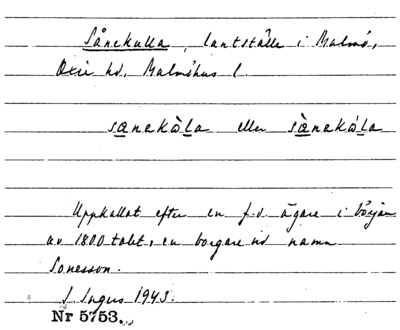 Sånekulla, lantställe i Malmö,
Oxie hd, Malmöhus l.
sanakòla eller sànakòla
Uppkallat efter en f.d. ägare i början
av 1800 talet, en borgare vid namn
Sonesson.
S. Ingers 1943.
Nr 5753.